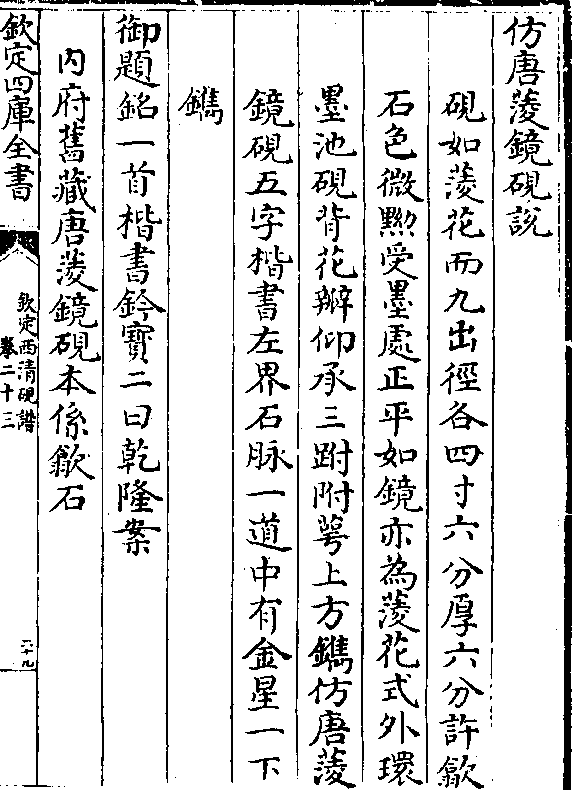 仿唐菱鏡硯説
硯如菱花而九出徑各四寸六分厚六分許歙
石色微黝受墨處正平如鏡亦為菱花式外環
墨池硯背花瓣仰承三跗附萼上方鐫仿唐菱
鏡硯五字楷書左界石脉一道中有金星一下
鐫
御題銘一首楷書鈐寳二曰乾隆案
内府舊藏唐菱鏡硯本係歙石
欽定四庫全書
欽定西清硯譜
卷二十三
二十九